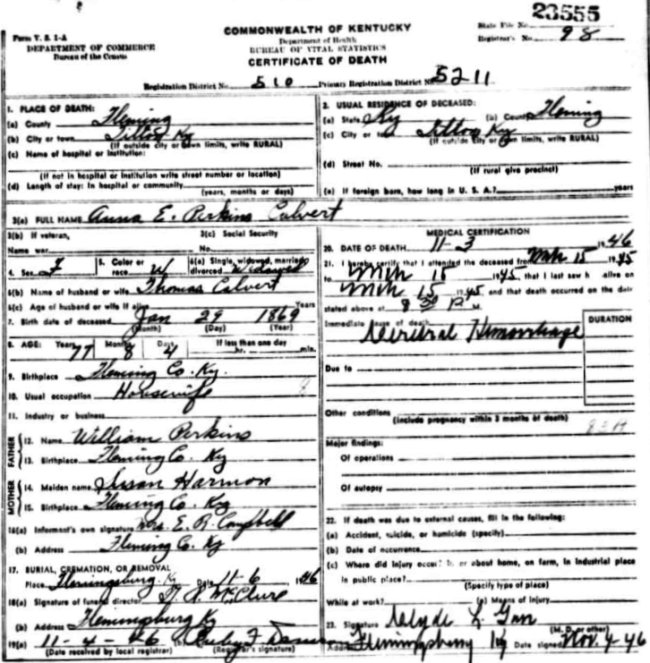 23555
Form V. S. 1-A
DEPARTMENT OF COMMERCE
Bureau of the Census
COMMONWEALTH OF KENTUCKY
Department of Health
BUREAU OF VITAL STATISTICS
CERTIFICATE OF DEATH
State File No.
Registrar's No. 98
Registration District No. 510 Primary Registration District No. 5211
1. PLACE OF DEATH:
(a) County Fleming
(b) City or town Tilton Ky
(If outside city or town limits, write RURAL)
(c) Name of hospital or institution:
(If not in hospital or institution write street number or location)
(d) Length of stay: In hospital or community
(years, months or days)
2. USUAL RESIDENCE OF DECEASED:
(a) State Ky (b) County Fleming
(c) City or Tilton Ky
(If outside city or town limits, write RURAL)
(d) Street No.
(If rural give precinct)
(e) If foreign born, how long in U. S. A.? years
3(a) FULL NAME Anna E. Perkins Calvert
3(b) If veteran,
Name war
3(c) Social Security
No.
4. Sex F
5. Color or race W
6(a) Single, widowed, married, divorced Widowed
6(b) Name of husband or wife Thomas Calvert
6(c) Age of husband or wife if alive Years
7. Birth date of deceased Jan 29 1869
(Month) (Day) (Year)
8. AGE: Years 77 Months 8 Days 4 If less than one day
hr. min.
9. Birthplace Fleming Co. Ky.
10. Usual occupation Housewife
11. Industry or business
FATHER
12. Name William Perkins
13. Birthplace Fleming Co. Ky
MOTHER
14. Maiden name Susan Harmon
15. Birthplace Fleming Co. Ky
16(a) Informant's own signature Mrs. E. R. Campbell
(b) Address Fleming Co. Ky
17. BURIAL, CREMATION, OR REMOVAL
Place Flemingsburg Ky Date 11-6 1946
18(a) Signature of funeral director McClure
(b) Address Flemingsburg Ky
19(a) 11-4-46
(Date received by local registrar) (Registrar's signature)
MEDICAL CERTIFICATION
20. DATE OF DEATH 11-3 1946
21. I hereby certify that I attended the deceased from Mch 15 1945
to Mch 15 1945, that I last saw h alive on
Mch 15 1945 and that death occurred on the date
stated above at 8 30 P. M.
DURATION
Immediate cause of death Cerebral Hemorrhage
Due to
Other conditions
(Include pregnancy within 3 months of death)
Major findings:
Of operations
Of autopsy
22. If death was due to external causes, fill in the following:
(a) Accident, suicide, or homicide (specify)
(b) Date of occurrence
(c) Where did injury occur? In or about home, on farm, in industrial place
in public place?
(Specify type of place)
While at work? (e) Means of injury
23. Signature Clyde L.
(M. D. or other)
Address Flemingsburg Ky Date signed Nov. 4-46